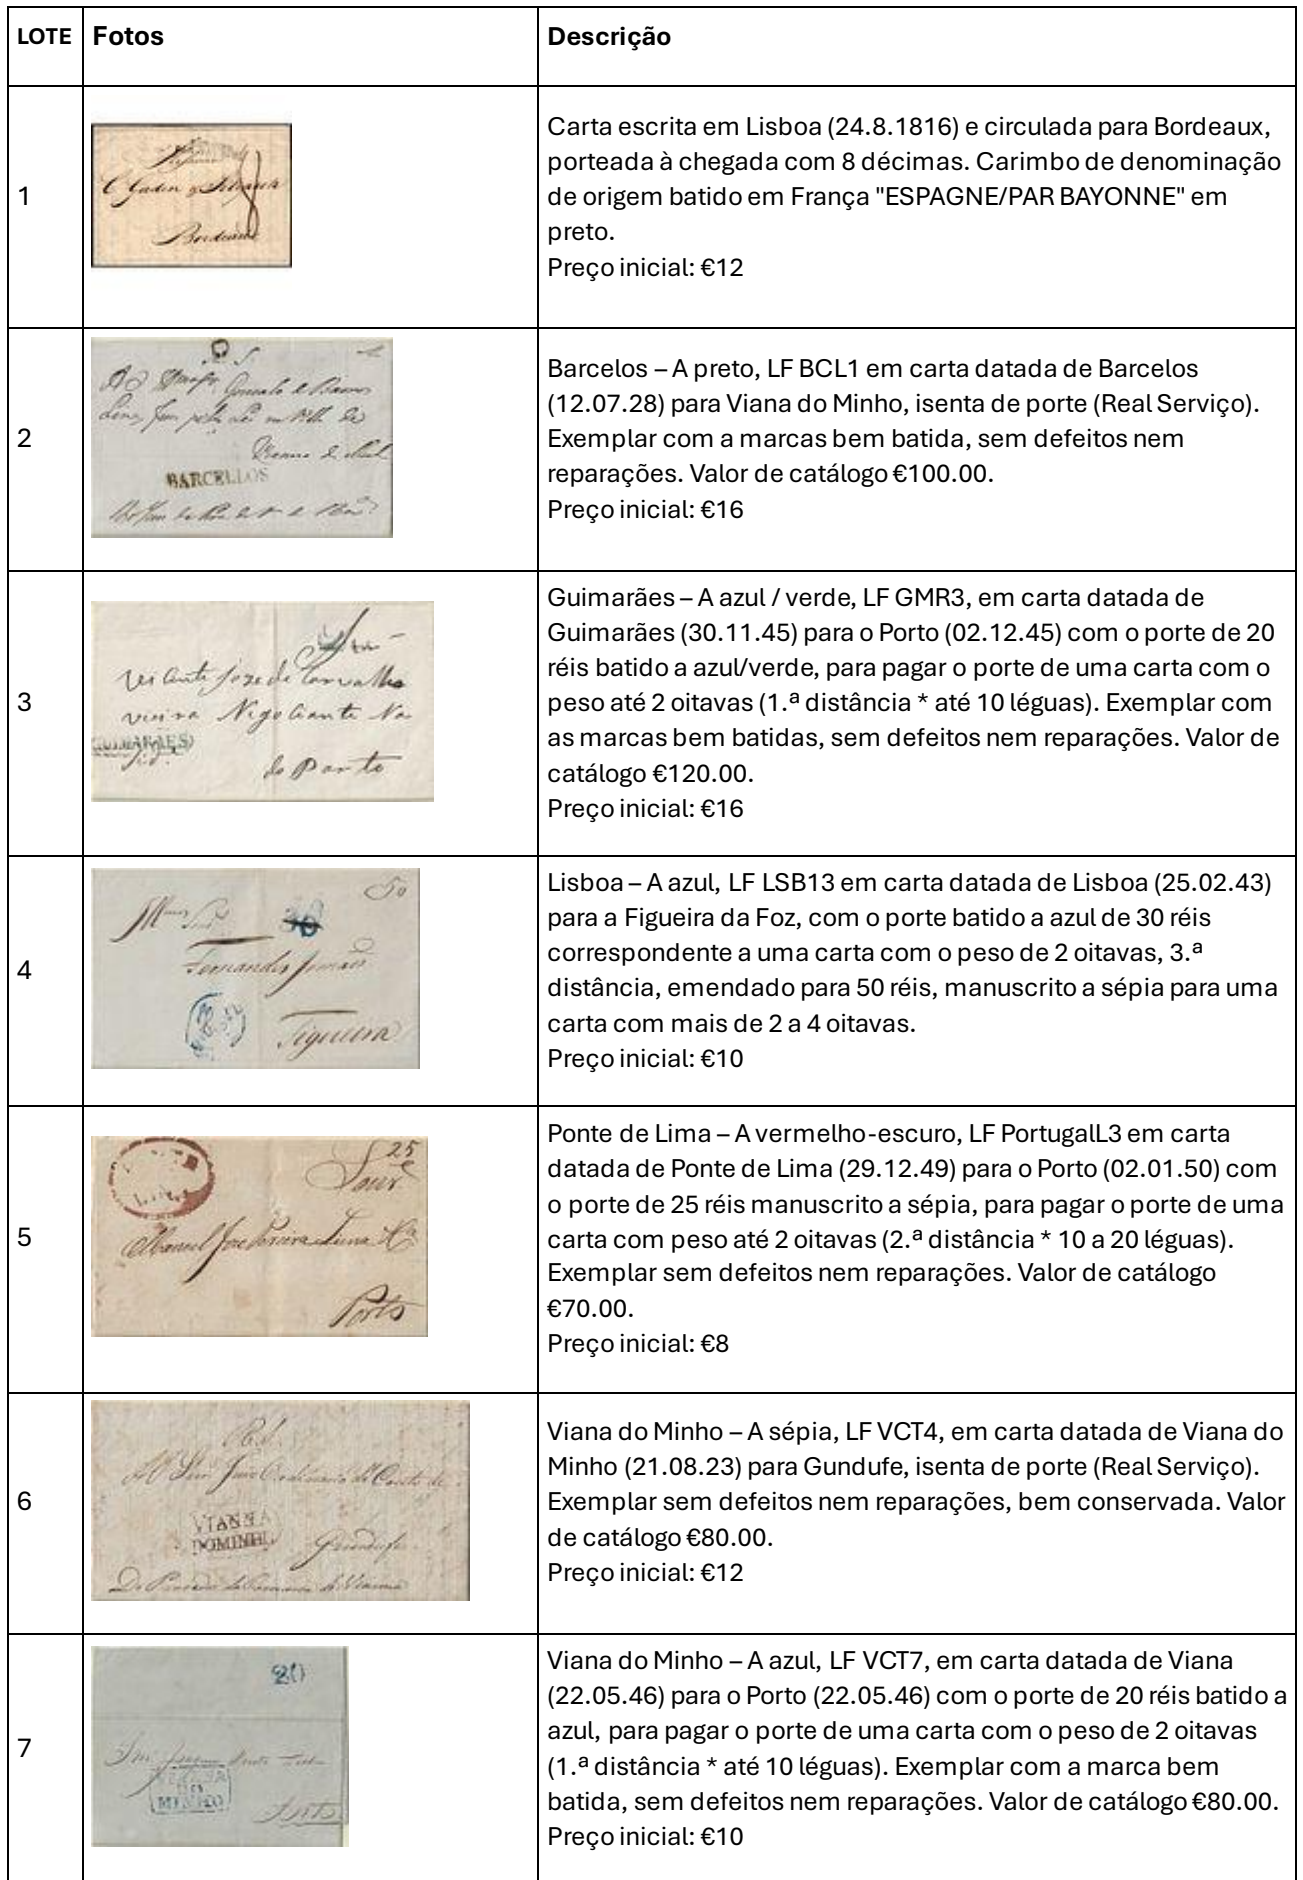 LOTE Fotos Descrição
1
Bordeaux
Carta escrita em Lisboa (24.8.1816) e circulada para Bordeaux,
porteada à chegada com 8 décimas. Carimbo de denominação
de origem batido em França "ESPAGNE/PAR BAYONNE" em
preto.
Preço inicial: €12
2
BARCELLOS
Barcelos – A preto, LF BCL1 em carta datada de Barcelos
(12.07.28) para Viana do Minho, isenta de porte (Real Serviço).
Exemplar com a marcas bem batida, sem defeitos nem
reparações. Valor de catálogo €100.00.
Preço inicial: €16
3
GUIMARAES
do Porto
Guimarães – A azul / verde, LF GMR3, em carta datada de
Guimarães (30.11.45) para o Porto (02.12.45) com o porte de 20
réis batido a azul/verde, para pagar o porte de uma carta com o
peso até 2 oitavas (1.ª distância * até 10 léguas). Exemplar com
as marcas bem batidas, sem defeitos nem reparações. Valor de
catálogo €120.00.
Preço inicial: €16
4
50
Figueira
Lisboa – A azul, LF LSB13 em carta datada de Lisboa (25.02.43)
para a Figueira da Foz, com o porte batido a azul de 30 réis
correspondente a uma carta com o peso de 2 oitavas, 3.ª
distância, emendado para 50 réis, manuscrito a sépia para uma
carta com mais de 2 a 4 oitavas.
Preço inicial: €10
5
25
Porto
Ponte de Lima – A vermelho-escuro, LF PortugalL3 em carta
datada de Ponte de Lima (29.12.49) para o Porto (02.01.50) com
o porte de 25 réis manuscrito a sépia, para pagar o porte de uma
carta com peso até 2 oitavas (2.ª distância * 10 a 20 léguas).
Exemplar sem defeitos nem reparações. Valor de catálogo
€70.00.
Preço inicial: €8
6
VIANNA
DOMINHO
Viana do Minho – A sépia, LF VCT4, em carta datada de Viana do
Minho (21.08.23) para Gundufe, isenta de porte (Real Serviço).
Exemplar sem defeitos nem reparações, bem conservada. Valor
de catálogo €80.00.
Preço inicial: €12
7
20
MINHO
Viana do Minho – A azul, LF VCT7, em carta datada de Viana
(22.05.46) para o Porto (22.05.46) com o porte de 20 réis batido a
azul, para pagar o porte de uma carta com o peso de 2 oitavas
(1.ª distância * até 10 léguas). Exemplar com a marca bem
batida, sem defeitos nem reparações. Valor de catálogo €80.00.
Preço inicial: €10